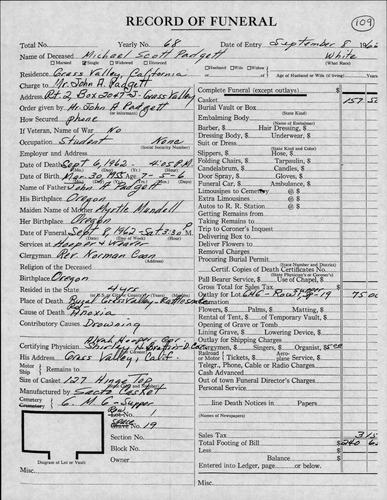 RECORD OF FUNERAL
109
Total No. Yearly No. 68 Date of Entry September 8 196
Name of Deceased Michael Scott Padgett White
Married Single Widowed Divorced Husband Wife Widow of (What Race)
Residence Grass Valley, California Age of Husband or Wife (if living) Years
Charge to Mr. John A. Padgett Complete Funeral (except outlays)
Address Rt. 2 Box 207 Grass Valley Casket 157 50
Order given by Mr. John A Padgett Burial Vault or Box
(or informant) (State Kind)
How Secured phone Embalming Body
(Name of Embalmer)
If Veteran, Name of War No Barber, $ Hair Dressing, $
Dressing Body, $ Underwear, $
Occupation Student None Suit or Dress
(Social Security Number) (State Kind and Color)
Employer and Address Slippers, $ Hose, $
Date of Death Sept 6, 1962 4:05 P.M. Folding Chairs, $ Tarpaulin, $
Candelabrum, $ Candles, $
Date of Birth Mar. 30, 1955 Age 7-5-6 Door Spray, $ Gloves, $
Name of Father John A Padgett Funeral Car, $ Ambulance, $
Limousines to Cemetery @ $
His Birthplace Oregon Extra Limousines @ $
Maiden Name of Mother Myrtle Mandell Autos to R. R. Station @ $
Her Birthplace Oregon Getting Remains
Taking Remains
Date of Funeral Sept 8, 1962 Sat 3:30 P Trip to Coroner's Inquest
Services at Hooper & Weaver Delivering Box to
Deliver Flowers to
Clergyman Rev. Norman Removal Charges
(Address)
Religion of the Deceased Procuring Burial Permit
Certif. Copies of Death Certificates No.
Birthplace Oregon (State Physician's or Coroner's)
Pall Bearer Service, $ Use of Chapel, $
Resided in the State 4 yrs Outlay for Lot 6M6 - Row 1, 19 75 00
Place of Death Rural Grass Valley Gratuities
Flowers, $ Palms, $ Matting, $
Cause of Death Anoxia Rental of Tent, $ of Temporary Vault, $
Contributory Causes Drowning Opening of Grave or Tomb
Lining Grave, $ Lowering Device, $
Alvah Hooper Cor Outlay for Shipping Charges
Certifying Physician Clergyman, $ Singers, $ Organist, $5.00
His Address Grass Valley, Calif. Railroad or Motor Tickets, $ Aeroplane Service, $
Motor Ship Remains to Telegr., Phone, Cable or Radio Charges
Cash Advanced
Size of Casket 127 Hinge Top Out of town Funeral Director's Charges
Manufactured by Sacto Casket Personal Service
Cemetery 6 M 6 - Supper line Death Notices in Papers
Lot No. Row 1 (Names of Newspapers)
Grave No. Space 19
Section No. Sales Tax 3 15
Block No. Total Footing of Bill $240 6
Less $
Owner Balance
Diagram of Lot or Vault Entered into Ledger, page or below.
Misc. Misc.